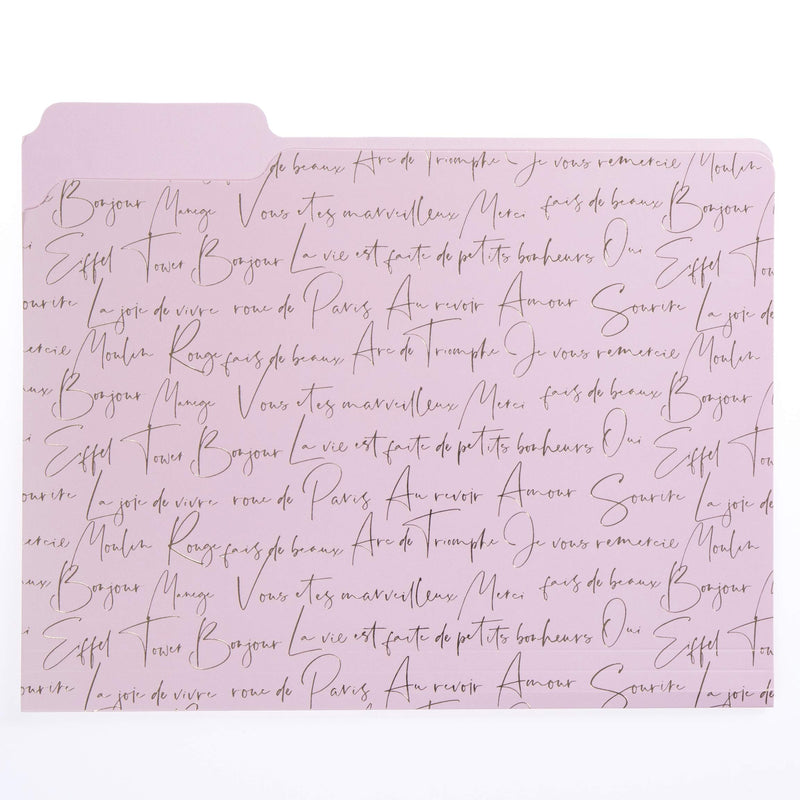 de beaux Arc de Triomphe Je vous remercie Moulin
Bonjour Manege Vous etes marveilleux Merci fais de beaux Bonjour
Eiffel Tower Bonjour La vie est faite de petits bonheurs Oui Eiffel Tower
ourire La joie de vivre roue de Paris Au revoir Amour Sourire La joie de
ercie Moulin Rouge fais de beaux Arc de Triomphe Je vous remercie Moulin
aux Bonjour Manege Vous etes marveilleux Merci fais de beaux Bonjour
Eiffel Tower Bonjour La vie est faite de petits bonheurs Oui Eiffel Tower
ourire La joie de vivre roue de Paris Au revoir Amour Sourire La joie de
ercie Moulin Rouge fais de beaux Arc de Triomphe Je vous remercie Moulin
aux Bonjour Manege Vous etes marveilleux Merci fais de beaux Bonjour
Eiffel Tower Bonjour La vie est faite de petits bonheurs Oui Eiffel Tower
ourire La joie de vivre roue de Paris Au revoir Amour Sourire La joie de